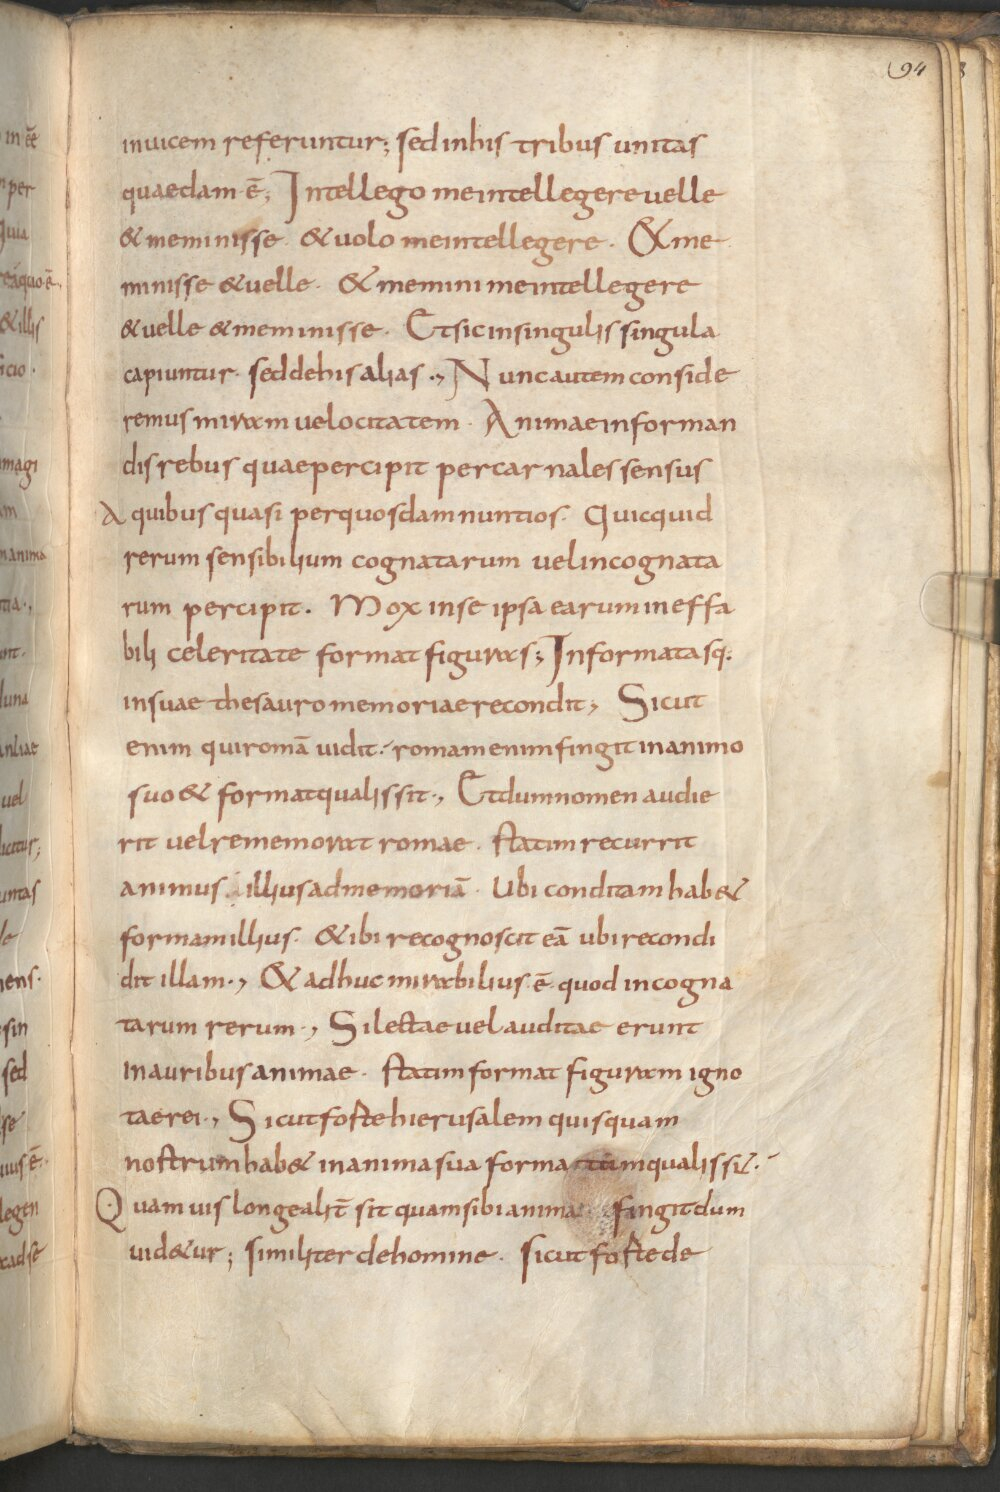 94
inuicem referuntur; sed in his tribus unitas
quaedam ē; Intellego me intellegere uelle
& meminisse · & uolo me intellegere · & me
minisse & uelle · & memini me intellegere
& uelle & meminisse · Et sic in singulis singula
capiuntur · sed de his alias ·, Nunc autem conside
remus miram uelocitatem · Animae in forman
dis rebus quae percipit per carnales sensus
A quibus quasi per quosdam nuntios · Quicquid
rerum sensibilium cognatarum uel incognata
rum percipit · Mox in se ipsa earum ineffa
bili celeritate format figuras; Informatasq:
in suae thesauro memoriae recondit, Sicut
enim qui romā uidit · romam enim fingit in animo
suo & format qualis sit ·, Et dum nomen audie
rit uel rememorat romae · statim recurrit
animus illius ad memoriā · Ubi conditam hab&
formam illius · & ibi recognoscit eā ubi recondi
dit illam ·, & adhuc mirabilius ē quod incogna
tarum rerum ·, Si lectae uel auditae erunt
in auribus animae · statim format figuram igno
tae rei ·, Sicut foste hierusalem quisquam
nostrum hab& in anima sua formatum qualis si& ·
Quam uis longe alit̄ sit quam sibi anima fingit dum
uid&ur; similiter de homine · sicut foste de